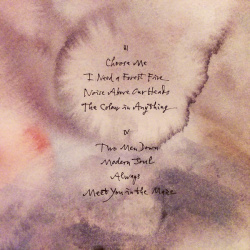 Choose Me
I Need a Forest Fire
Noise Above Our Heads
The Colour in Anything
Two Men Down
Modern Soul
Always
Meet You in the Maze